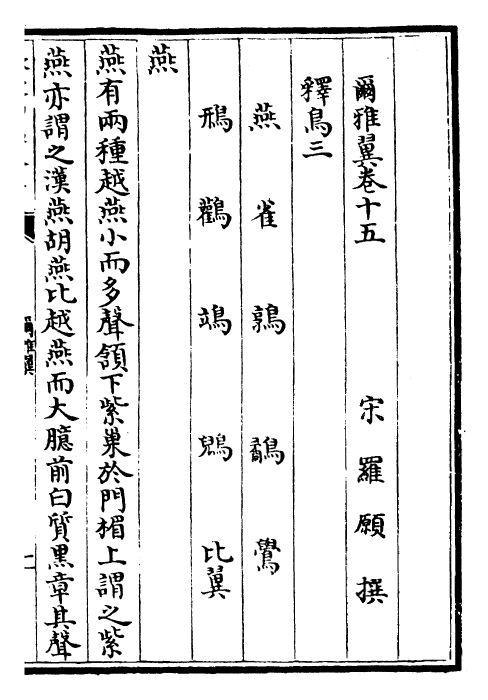 爾雅翼卷十五
宋羅願撰
釋鳥三
燕 雀 鶉 鷸 鷽
鴉 鸛 鴗 鶂 比翼
燕
燕有兩種越燕小而多聲頷下紫巢於門楣上謂之紫
燕亦謂之漢燕胡燕比越燕而大臆前白質黑章其聲
爾雅翼